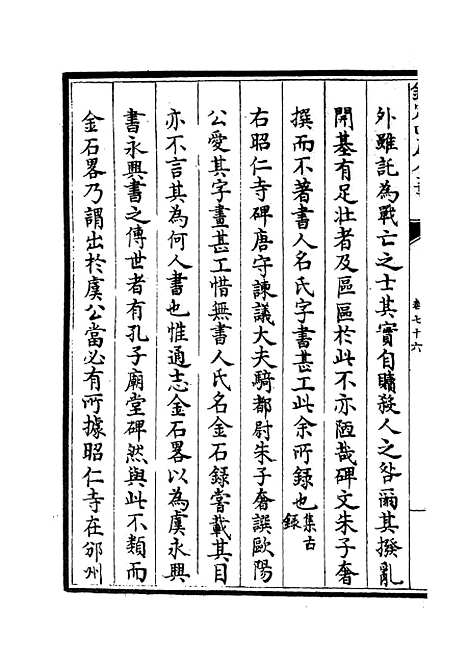 外雖託為戰亡之士其實自贖殺人之咎爾其撥亂
開基有足壯者及區區於此不亦陋哉碑文朱子奢
撰而不著書人名氏字書甚工此余所録也集古録
右昭仁寺碑唐守諫議大夫騎都尉朱子奢譔歐陽
公愛其字畫甚工惜無書人氏名金石録嘗載其目
亦不言其為何人書也惟通志金石畧以為虞永興
書永興書之傳世者有孔子廟堂碑然與此不類而
金石畧乃謂出於虞公當必有所據昭仁寺在邠州
卷七十六